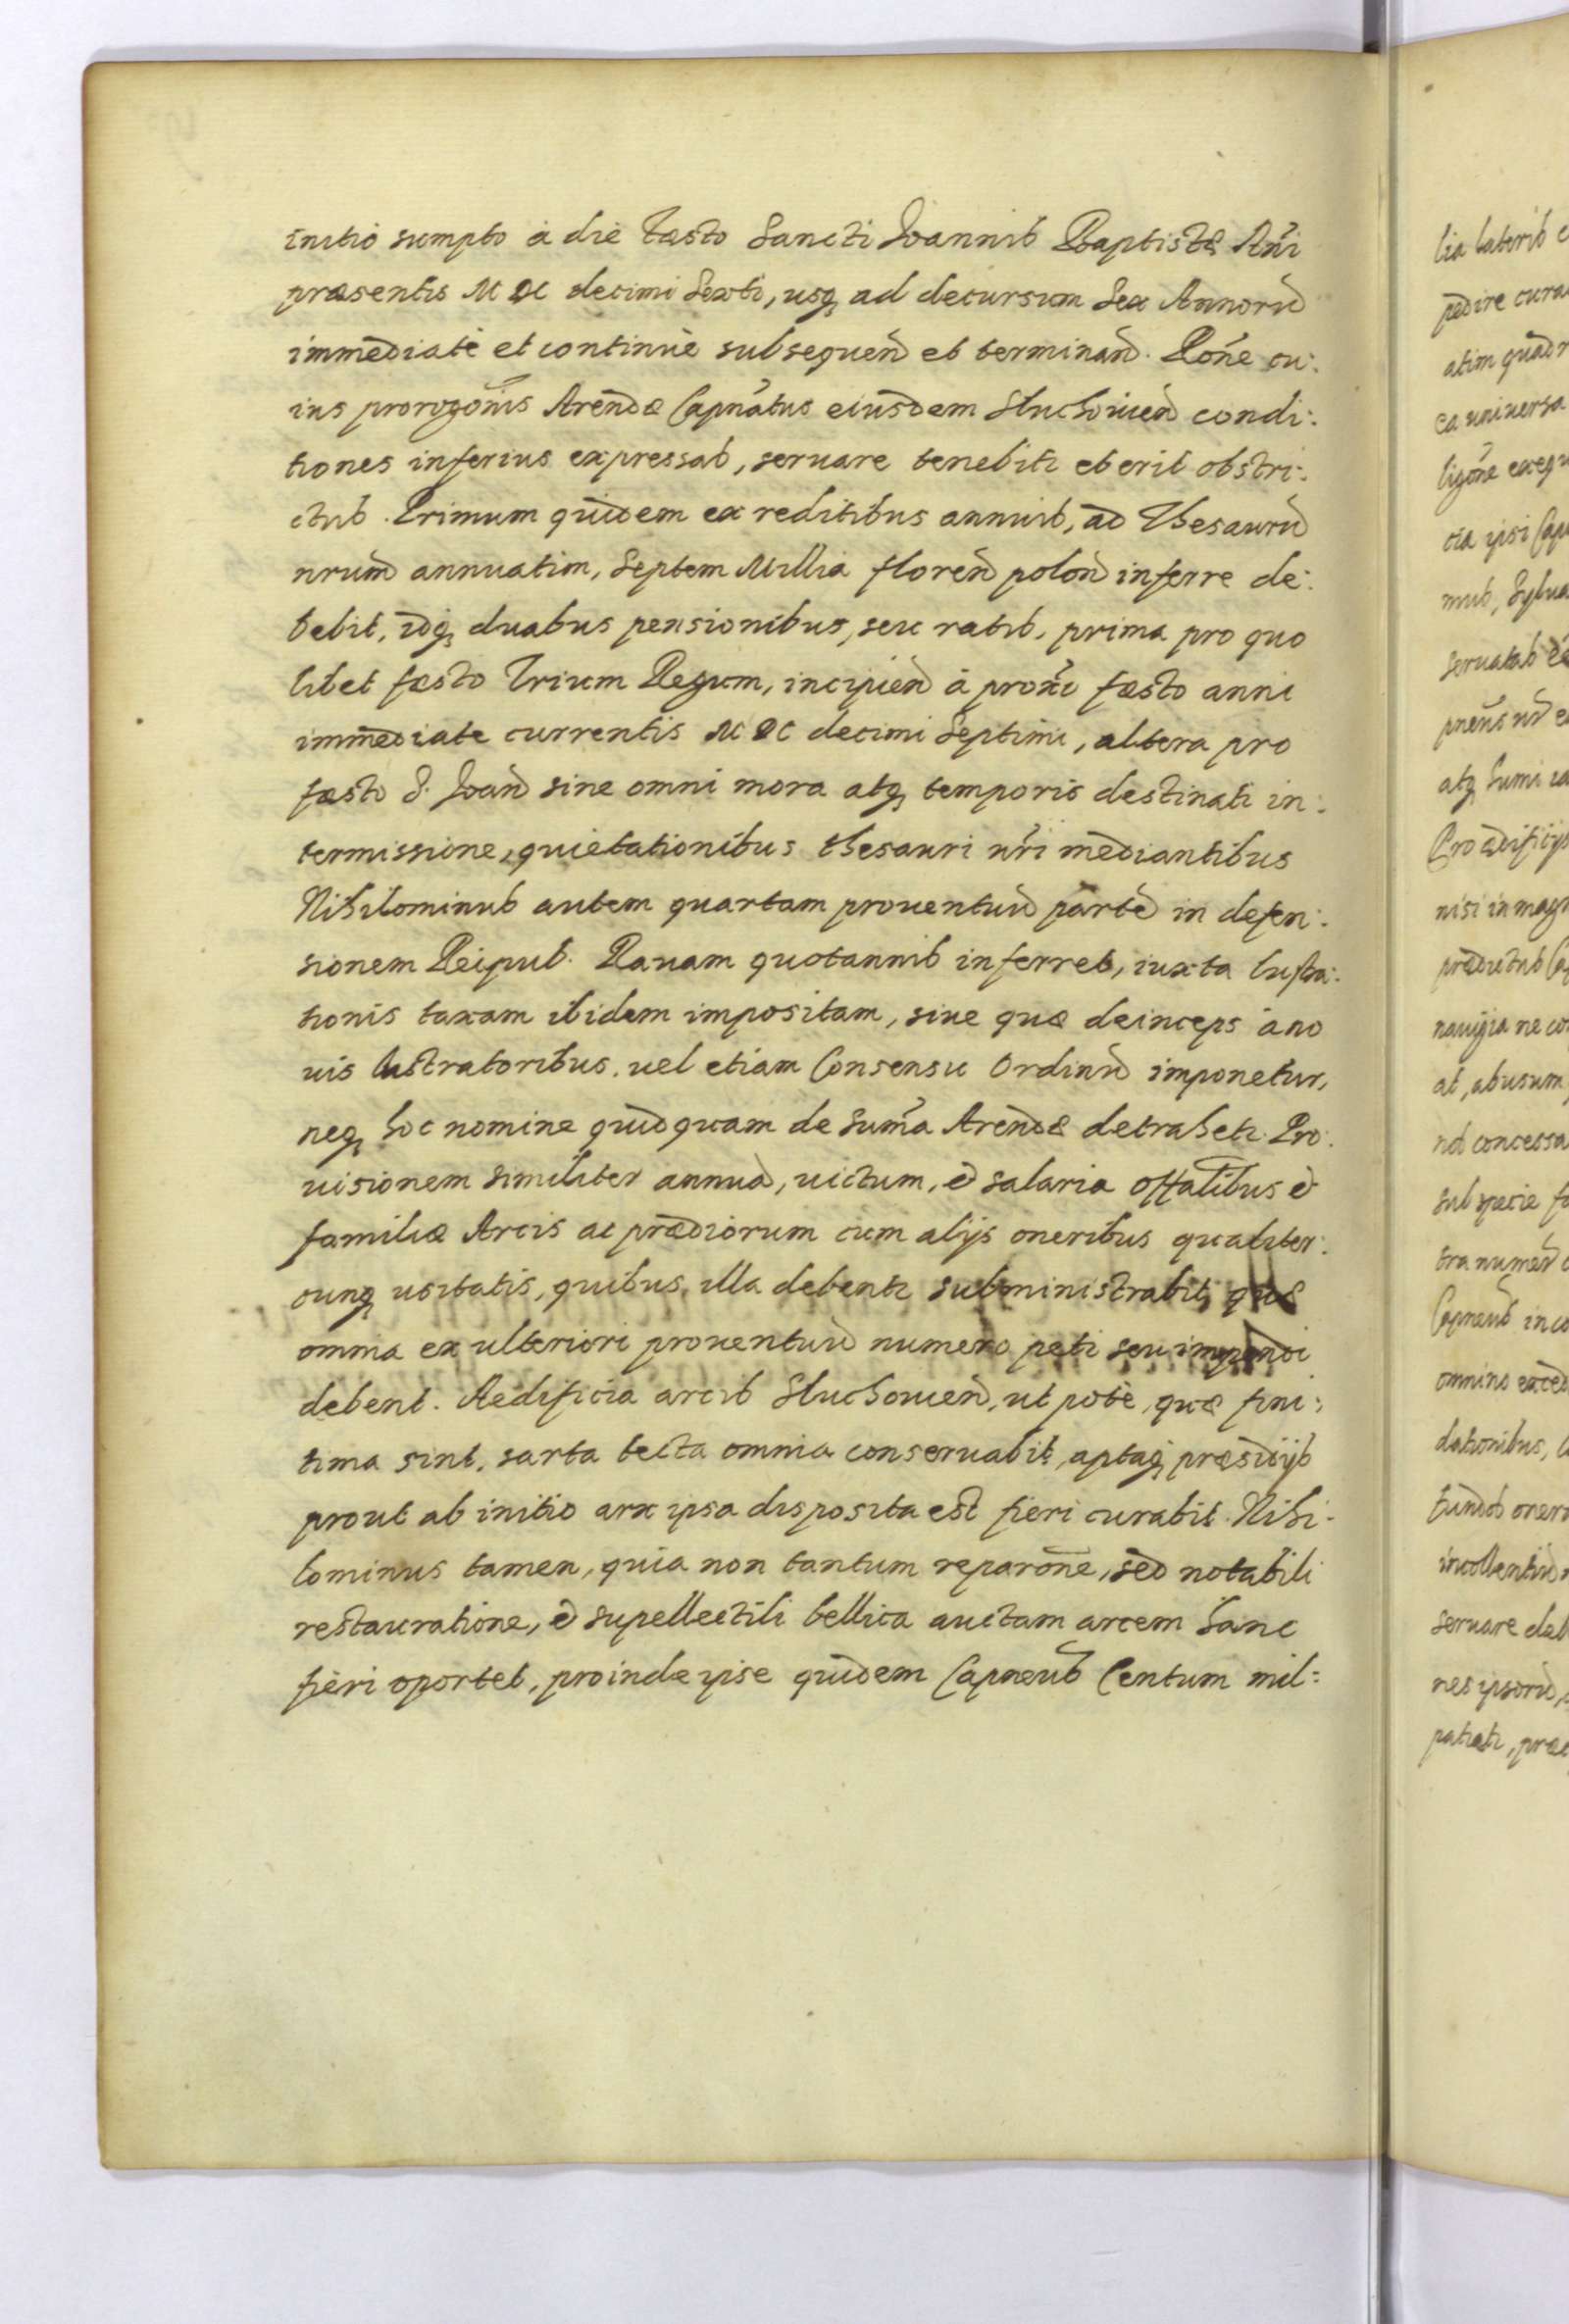 initio sumpto á die Fæsto Sancti Joannis Baptistæ Añi
præsentis MDC decimi Sexti, usq ad decursum Sex Annorū
immediatè et continuè subsequen̄ et terminan̄. Rõne cu:
ius prorogõnis Arendæ Capnãtus eiusdem Sluchouien̄ condi:
tiones inferius expressas, seruare tenebitr et erit obstri:
ctus. Primum quidem ex reditibus annuis, ad Thesaurū
nrum̄ annuatim, Septem Millia floren̄ polon̄ inferre de:
bebit, idq duabus pensionibus, seu ratis, prima pro quo
libet fæsto Trium Regum, incipien̄ á proxĩ fæsto anni
immediate currentis MDC decimi Septimi, altera pro
fæsto S. Joan̄ sine omni mora atq temporis destinati in:
termissione, quietationibus thesauri nr̃i mediantibus
Nihilominus autem quartam prouentuū partē in defen:
sionem Reipub. Rauam quotannis inferret, iuxta lustra:
tionis taxam ibidem impositam, siue quæ deinceps áno
uis lustratoribus, uel etiam Consensu Ordinū imponetur,
neq hoc nomine quidquam de Sum̃a Arendæ detrahetr. Pro:
uisionem similiter annuā, uictum, & salaria offalibus &
familiæ Arcis ac prædiorum cum alijs oneribus qualiter:
cunq usitatis, quibus illa debentr subministrabit, quæ
omnia ex ulteriori prouentuū numero peti seu impendi
debent. Aedificia arcis Sluchouien̄, ut potè, quæ fini:
tima sint, sarta tecta omnia conseruabit, aptaq præsidijs
prout ab initio arx ipsa disposita est fieri curabit. Nihi:
lominus tamen, quia non tantum reparõne, sed notabili
restauratione, & supellectili bellica auctam arcem hanc
fieri oportet, proinde ipse quidem Capneus Centum mil:
lia lateris
pedire cura
atim quadr
ea uniuersa
ligõne exequ
tia ipsi Cap
mus, Sylua
seruatas
pñens
atq Sumi
Pro ædificijs
nisi in mag
prædictus Ca
nauigia ne co
at, abusum
concessa
sub specie f
tra numer̄
Capneus inco
omnino exced
dationibus,
oner
incollentiū
seruare deb
nes ipsorū
patietr, præ